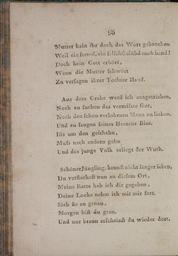 98
Mutter hast ihr doch das Wort gebrochen,
Weil ein fremd, ein falsch Gelübd euch band!
Doch kein Gott erhört,
Wenn die Mutter schwört
Zu versagen ihrer Tochter Hand.
Aus dem Grabe werd ich ausgetrieben,
Noch zu suchen das vermißte Gut,
Noch den schon verlohrnen Mann zu lieben,
Und zu saugen seines Herzens Blut.
Ists um den geschehn,
Muß nach andern gehn
Und das junge Volk erliegt der Wuth.
Schöner Jüngling, kannst nicht länger leben,
Du versiechest nun an diesem Ort,
Meine Kette hab ich dir gegeben,
Deine Locke nehm ich mit mir fort.
Sieh sie an genau,
Morgen bist du grau,
Und nur braun erscheinst du wieder dort.